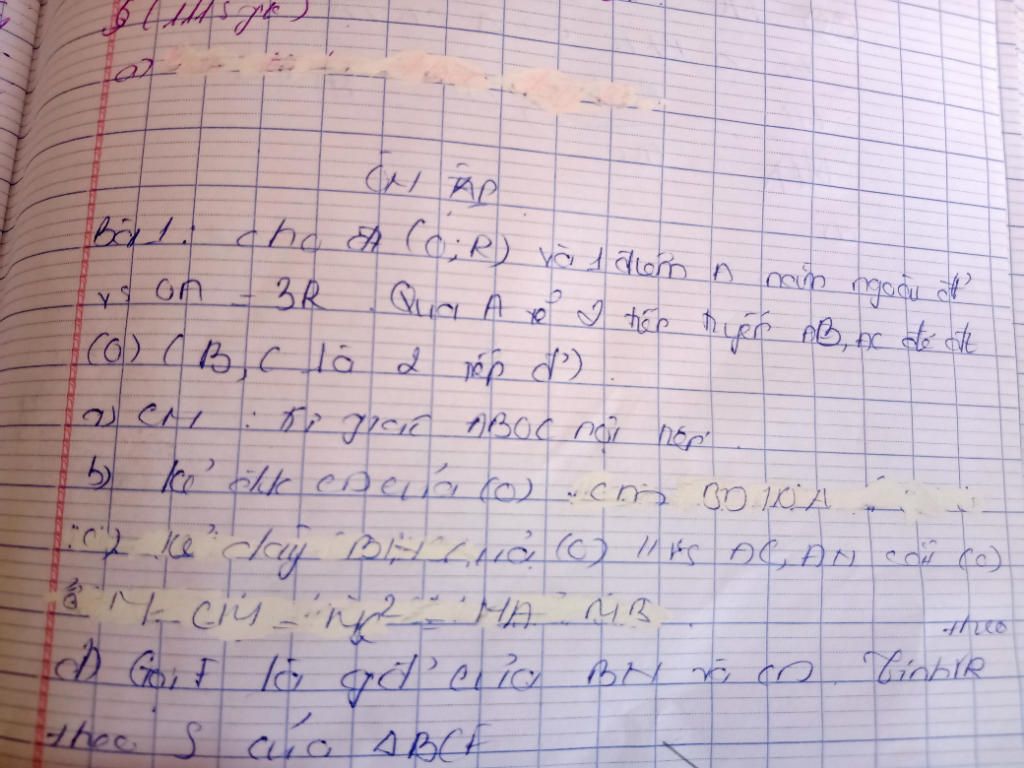 5 (111 sgk)
a)
ÔN TẬP
Bài 1: cho đt (O;R) và 1 điểm A nằm ngoài đt
vs OA = 3R. Qua A kẻ 2 tiếp tuyến AB, AC đế đt
(O) (B, C là 2 tiếp đ')
a) CM: tứ giác ABOC nội tiếp
b) Kẻ đkk CD của (O). CM BD // OA
c) kẻ dây BN của (O) // vs AC, AN cắt (O)
ở M CM MC² = MA MB
theo
d) Gọi F là gđ' của BN và CD. Tính R
theo S của ΔBCF